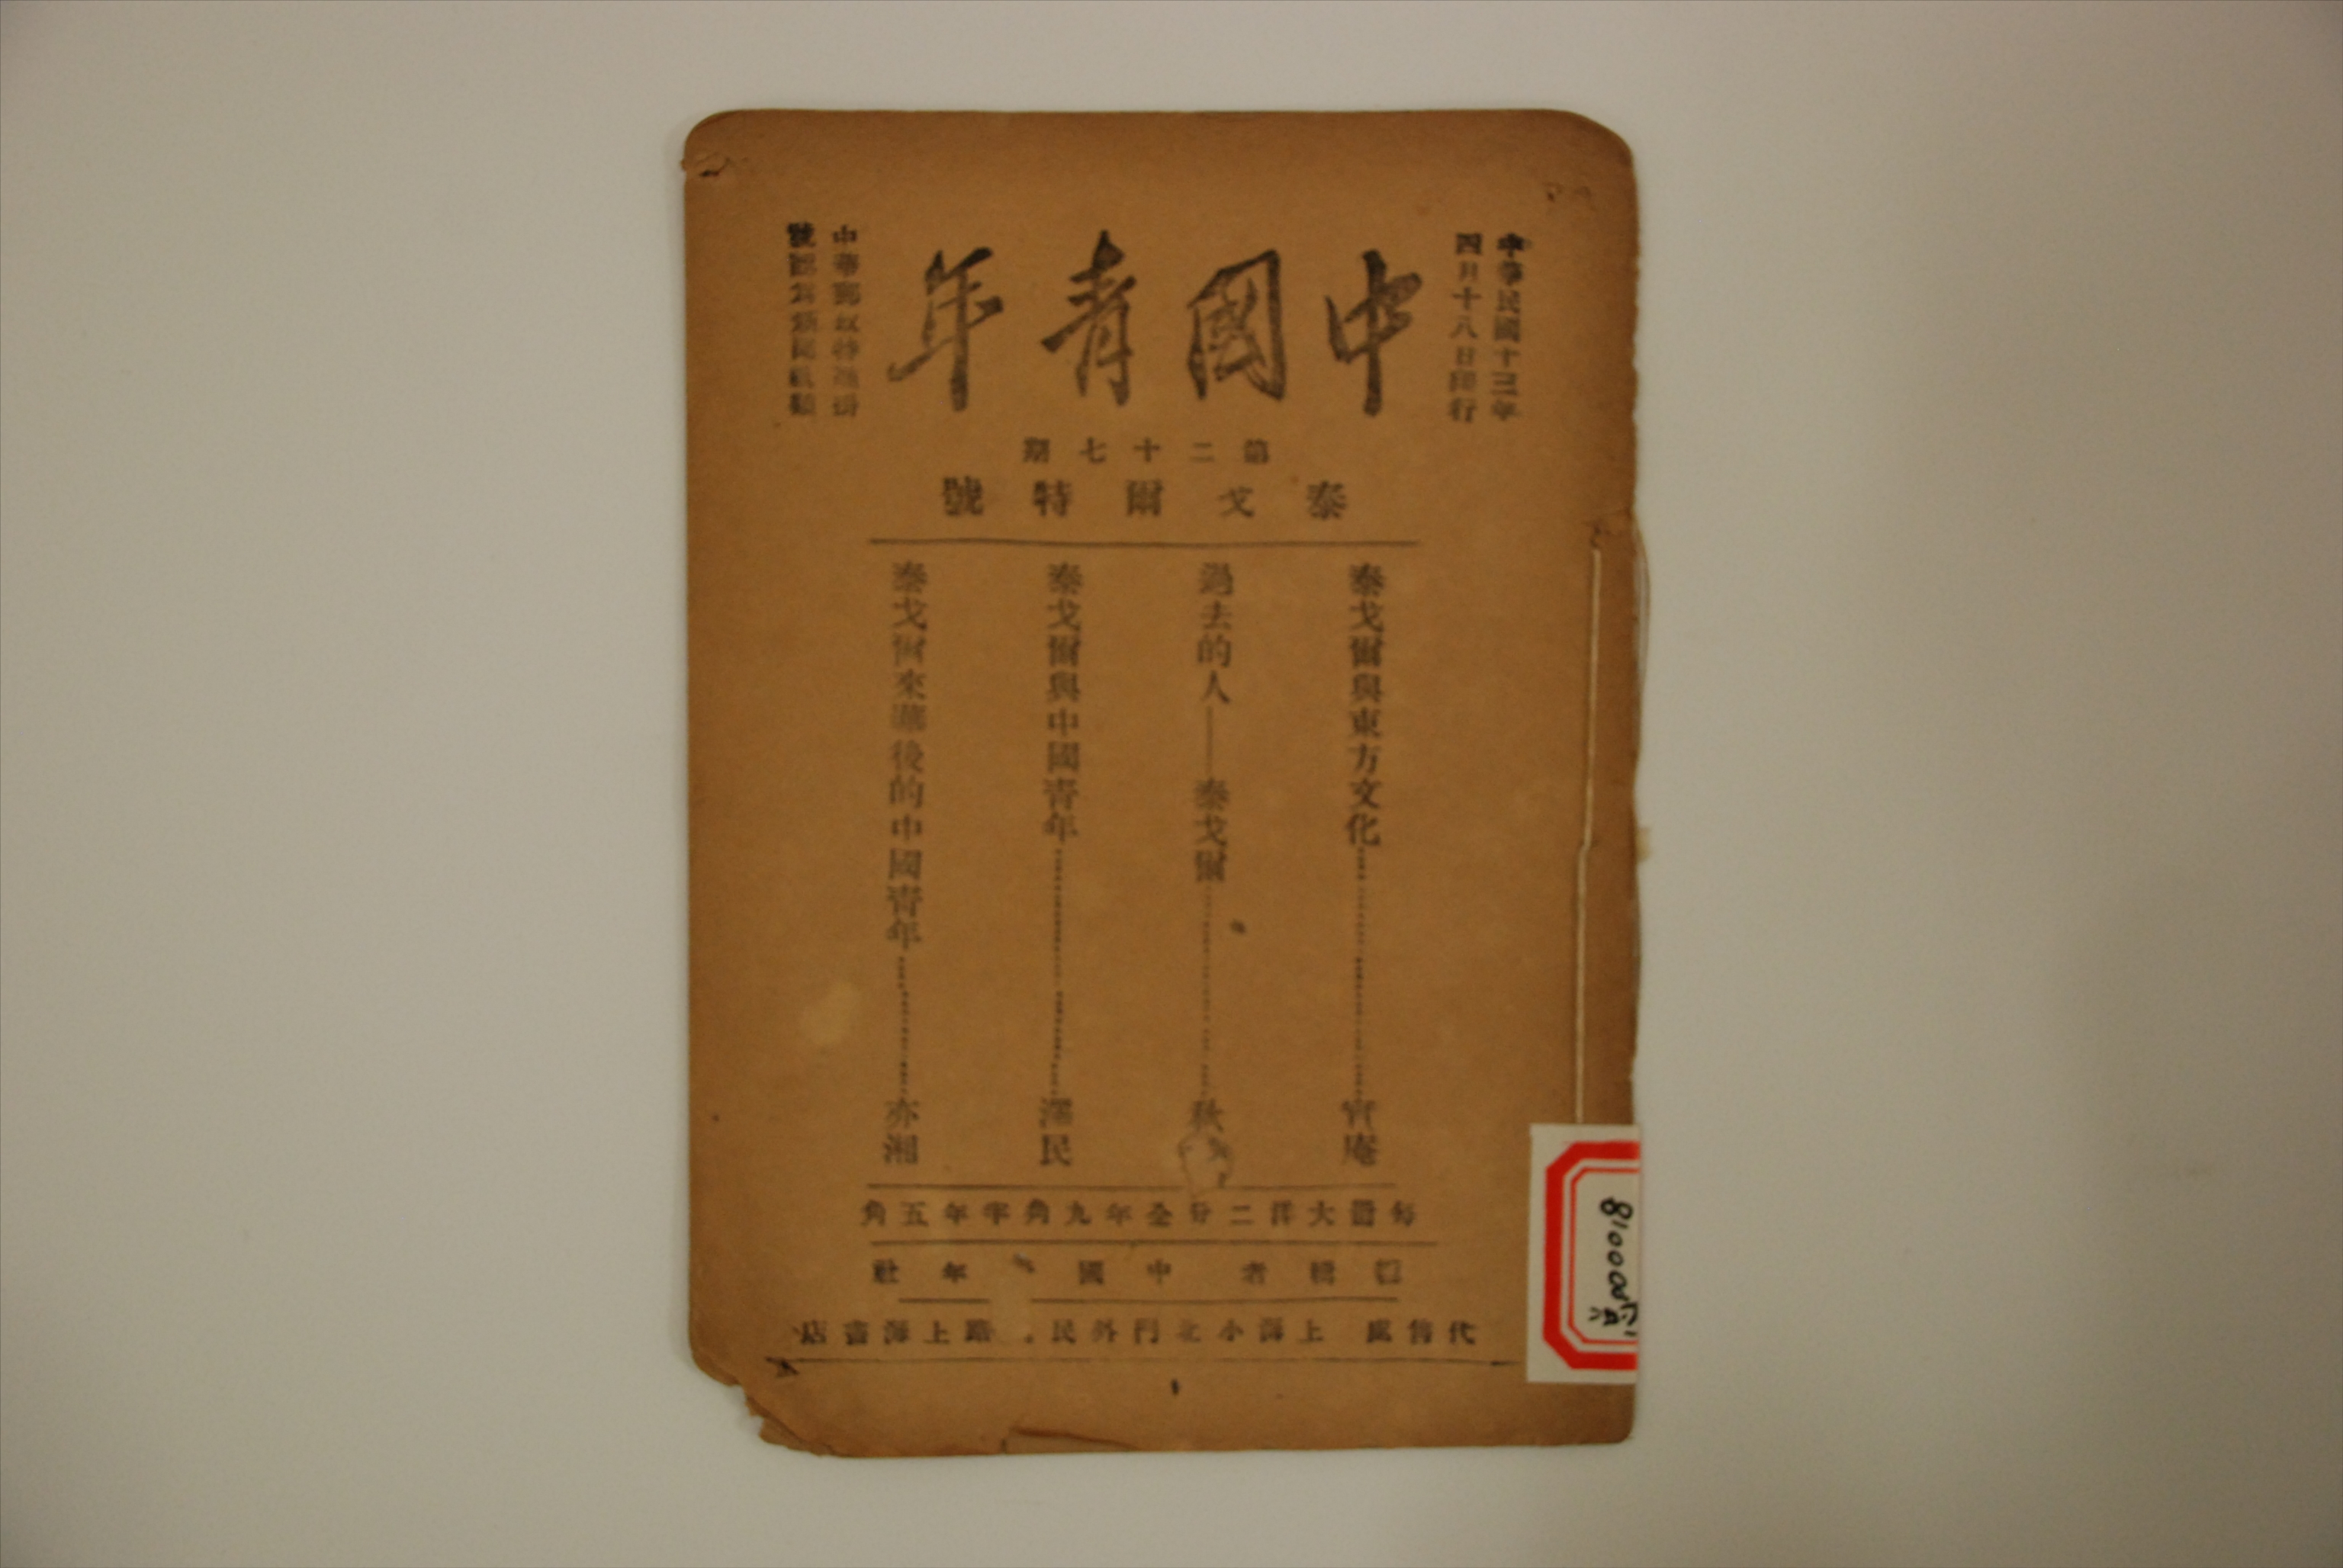 中華民國十三年
四月十八日印行
中國青年
中華郵政特准掛
號認為新聞紙類
第二十七期
泰戈爾特號
泰戈爾與東方文化……實庵
過去的人——泰戈爾……秋
泰戈爾與中國青年……澤民
泰戈爾來華後的中國青年……亦湘
每冊大洋二分全年九角半年五角
編輯者 中國 年社
代售處 上海小北門外民 路上海書店